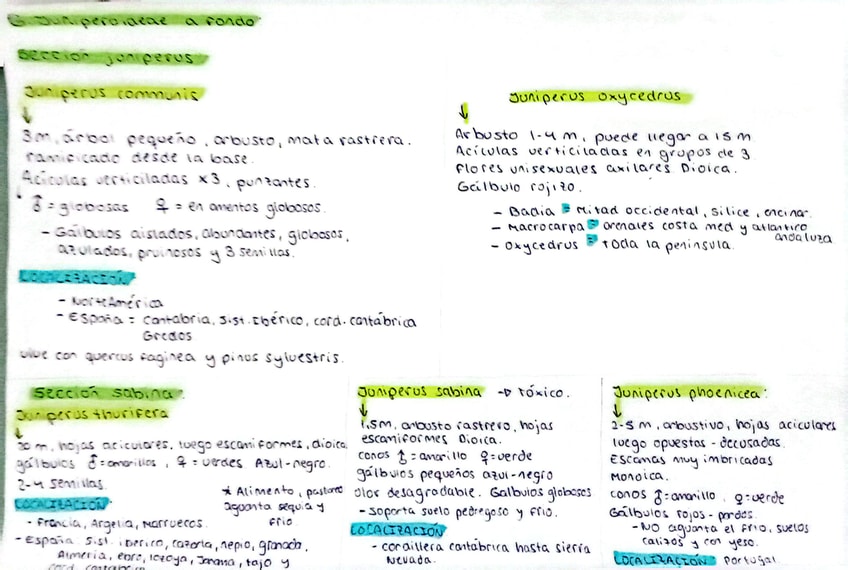 6. Juniperoideae a fondo:
Sección juniperus
Juniperus communis
3m, árbol pequeño, arbusto, mata rastrera.
ramificado desde la base.
Acículas verticiladas x3, punzantes.
♂ = globosas ♀ = en amentos globosos.
- Gálbulos aislados, abundantes, globosos,
azulados, pruinosos y 3 semillas.
LOCALIZACIÓN
- Norteamérica
- España = Cantabria, Sist. Ibérico, cord. cantábrica
Gredos
vive con quercus faginea y pinus sylvestris.
Juniperus oxycedrus
Arbusto 1-4 m, puede llegar a 15 m
Acículas verticiladas en grupos de 3
Flores unisexuales axilares. Dioica.
Gálbulo rojizo.
- Badia = Mitad occidental, sílice, encinar.
- Macrocarpa = arenales costa med y atlántico
andaluza
- Oxycedrus = Toda la península.
Sección sabina:
Juniperus thurifera
20 m, hojas aciculares, luego escamiformes, dioica
gálbulos ♂ = amarillos, ♀ = verdes Azul-negro.
2-4 semillas.
* Alimento, pastoreo
aguanta sequía y
frío.
LOCALIZACIÓN
- Francia, Argelia, Marruecos.
- España = Sist. ibérico, cazorla, granada,
Almería, ebro, lozoya, Jarama, tajo y
cord. cantábrica
Juniperus sabina → Tóxico.
1,5m, arbusto rastrero, hojas
escamiformes Dioica.
conos ♂ = amarillo ♀ = verde
gálbulos pequeños azul-negro
olor desagradable. Galbulos globosos
- Soporta suelo pedregoso y frío.
LOCALIZACIÓN
- cordillera cantábrica hasta sierra
Nevada.
Juniperus phoenicea:
2-5 m, arbustivo, hojas aciculares
luego opuestas - decusadas.
Escamas muy imbricadas
Monoica.
conos ♂ = amarillo, ♀ = verde
Gálbulos rojos - pardos.
- No aguanta el frío, suelos
calizos y con yeso.
LOCALIZACIÓN Portugal